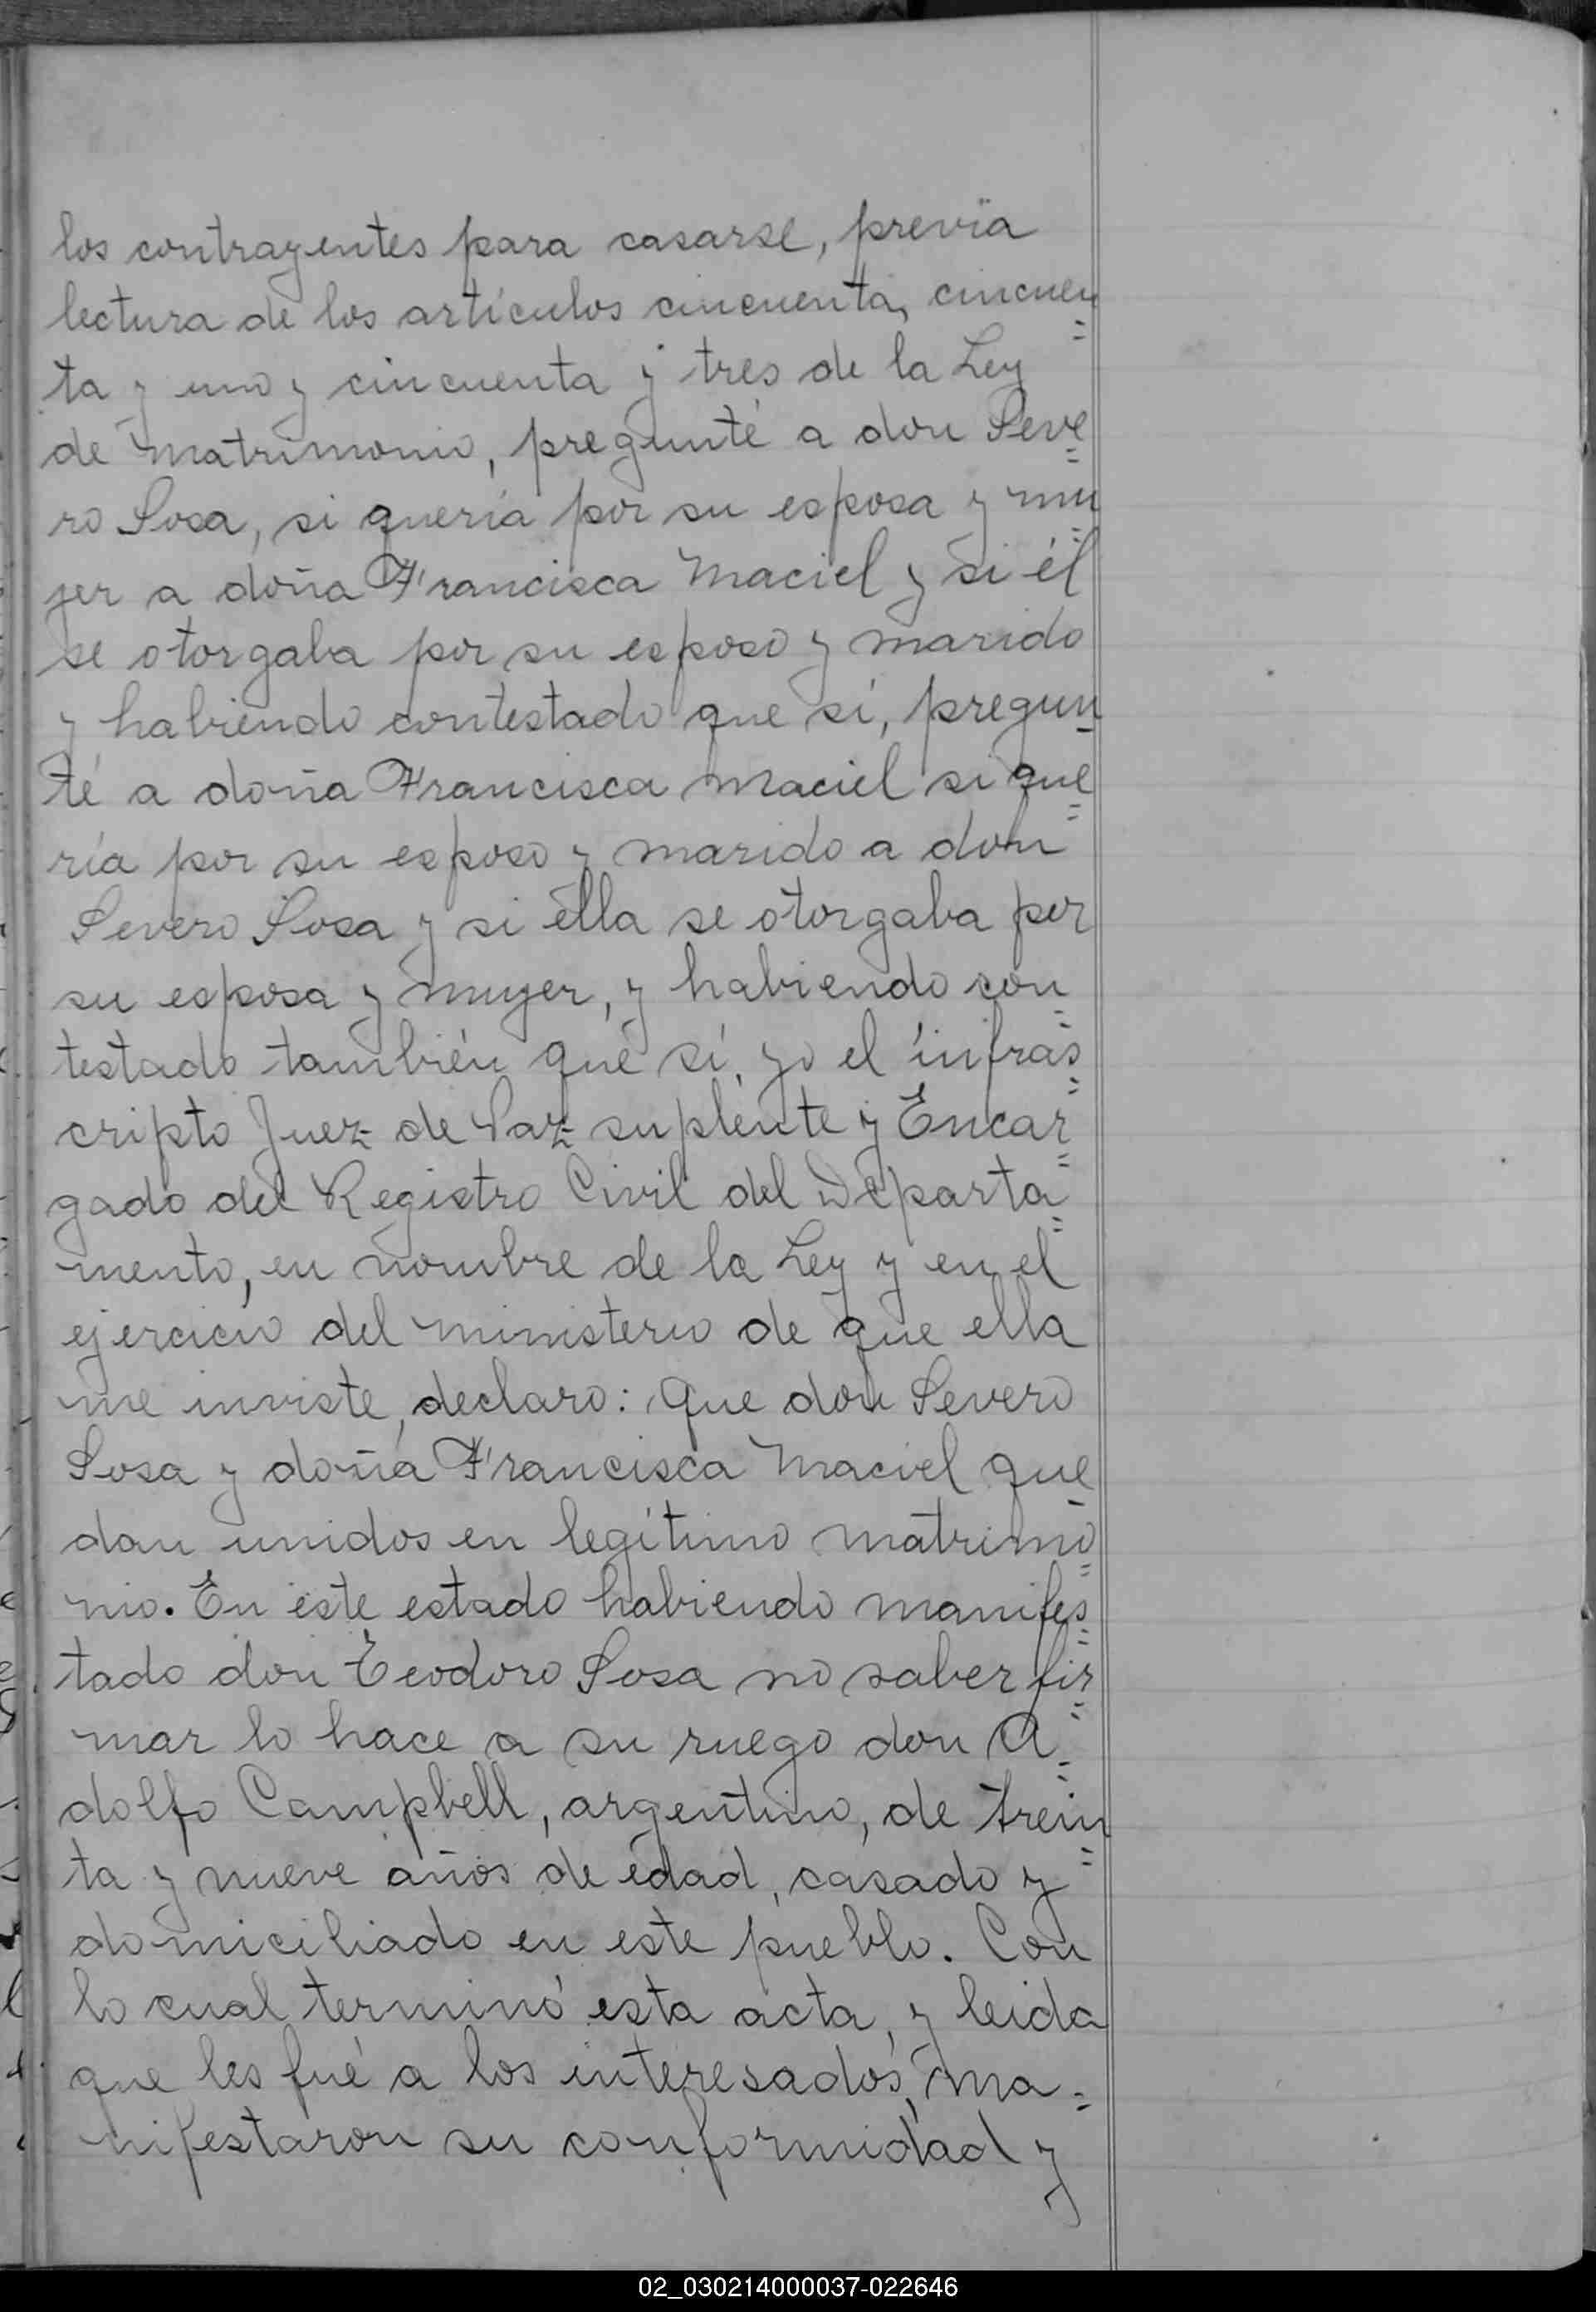 los contrayentes para casarse, previa
lectura de los artículos cincuenta, cincuen
ta y uno y cincuenta y tres de la Ley
de matrimonio, pregunté a don Seve=
ro Sosa, si quería por su esposa y mu=
jer a doña Francisca Maciel y si él
se otorgaba por su esposo y marido
y habiendo contestado que sí, pregun-
té a doña Francisca Maciel si que=
ría por su esposo y marido a don
Severo Sosa y si ella se otorgaba por
su esposa y mujer, y habiendo con=
testado también que sí, yo el infras=
cripto Juez de Paz suplente y Encar=
gado del Registro Civil del Departa=
mento, en nombre de la Ley y en el
ejercicio del ministerio de que ella
me inviste, declaro: Que don Severo
Sosa y doña Francisca Maciel que-
dan unidos en legítimo matrimo=
nio. En este estado habiendo manifes=
tado don Teodoro Sosa no saber fir=
mar lo hace a su ruego don A=
dolfo Campbell, argentino, de trein=
ta y nueve años de edad, casado y
domiciliado en este pueblo. Con
lo cual terminó esta acta, y leida
que les fué a los interesados, ma=
nifestaron su conformidad y
02_030214000037-022646